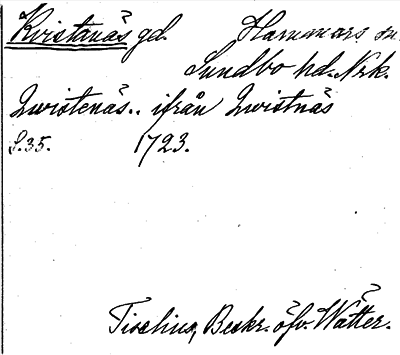 Kvistanäs gd. Hammars sn
Sundbo hd. Nrk.
Qwistenäs.. ifrån Qwistnäs
S.35. 1723.
Tiselius, Beskr. öfv. Wätter.